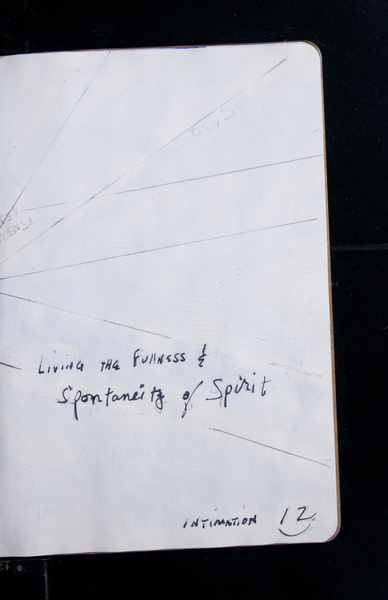 LIVING THE FULLNESS &
Spontaneity of Spirit
INTIMATION 12